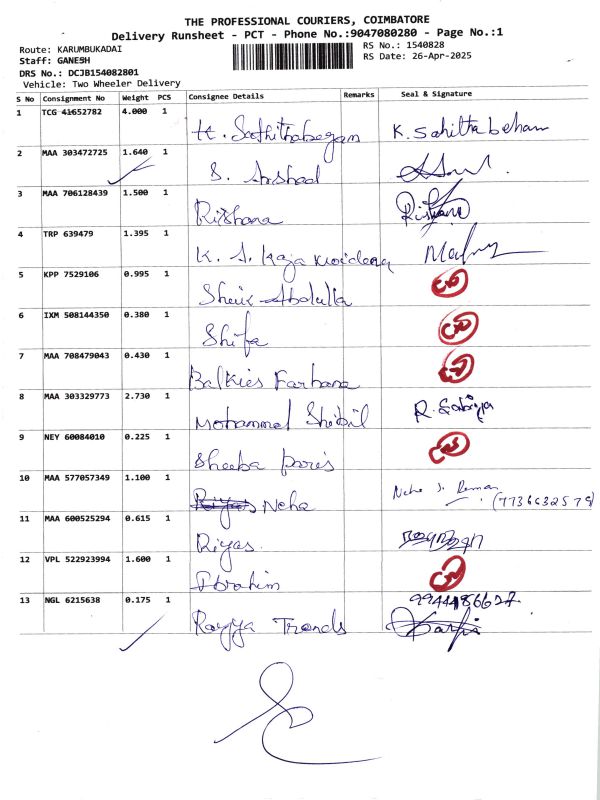 THE PROFESSIONAL COURIERS, COIMBATORE
Delivery Runsheet - PCT - Phone No.:9047080280 - Page No.:1
Route: KARUMBUKADAI
RS No.: 1540828
Staff: GANESH
RS Date: 26-Apr-2025
DRS No.: DCJB154082801
Vehicle: Two Wheeler Delivery
S No Consignment No Weight PCS Consignee Details Remarks Seal & Signature
1 TCG 41652782 4.000 1 K. Sahithabeham
2 MAA 303472725 1.640 1 S. Arshad
3 MAA 706128439 1.500 1 Rishana
4 TRP 639479 1.395 1 K. S. Kaja
5 KPP 7529106 0.995 1 Sheik Abdulla
6 IXM 508144350 0.380 1 Shifa
7 MAA 708479043 0.430 1 Balkies Farhana
8 MAA 303329773 2.730 1 Mohammed Shibil R. Sabiya
9 NEY 60084010 0.225 1 Sheeba
10 MAA 577057349 1.100 1 Riyas Neha Neha S.
(7736632579)
11 MAA 600525294 0.615 1 Riyas.
12 VPL 522923994 1.600 1 Ibrahim
13 NGL 6215638 0.175 1 Rayya Trends 9944486627